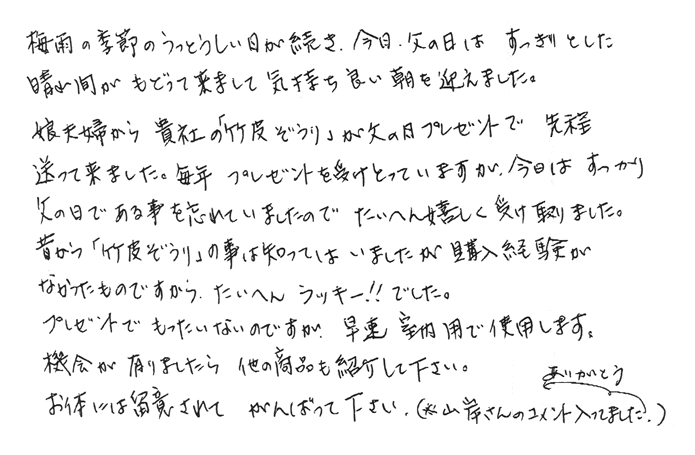 梅雨の季節のうっとうしい日が続き、今日、父の日は すっきりとした
晴れ間が もどって来まして 気持ち良い朝を迎えました。
娘夫婦から 貴社の「竹皮ぞうり」が父の日プレゼントで 先程
送って来ました。毎年 プレゼントを受けとっていますが、今日は すっかり
父の日である事を忘れていましたので たいへん嬉しく受け取りました。
昔から「竹皮ぞうり」の事は知ってはいましたが 購入経験が
なかったものですから、たいへん ラッキー!!でした。
プレゼントで もったいないのですが、早速 室内用で使用します。
機会が有りましたら 他の商品も紹介して下さい。
ありがとう
お体には留意されて がんばって下さい。(※山岸さんのコメント入ってました。)